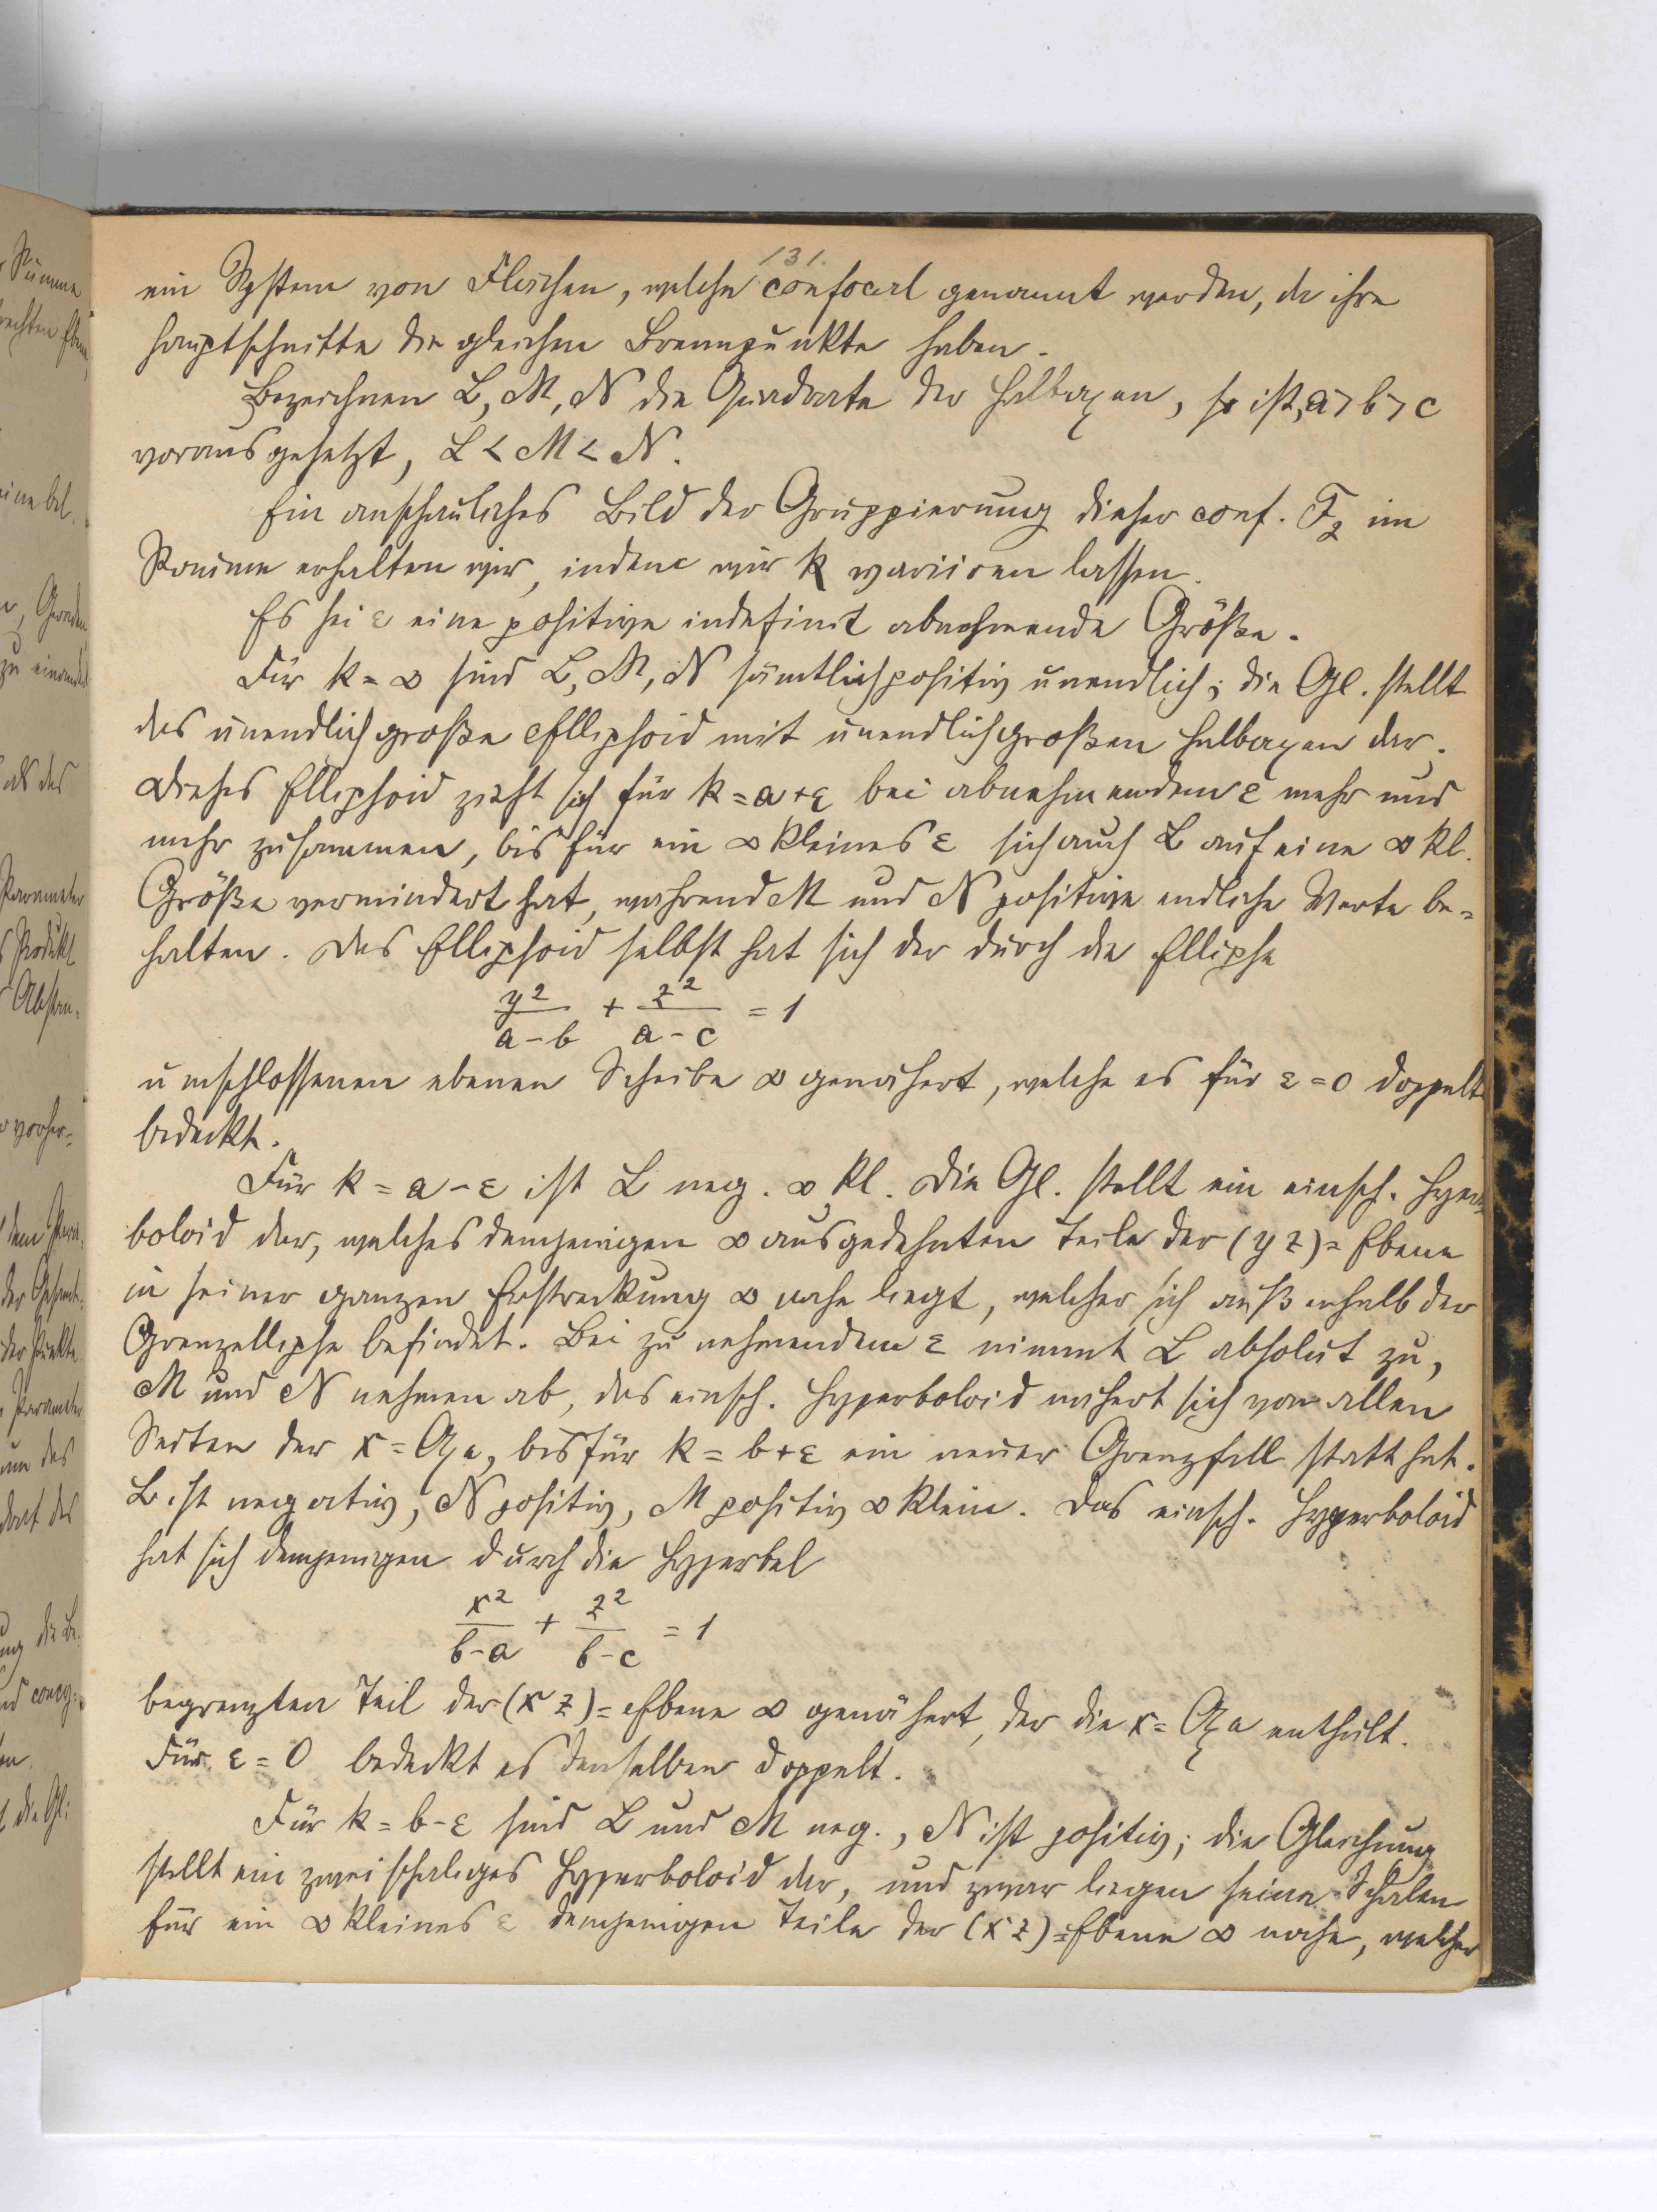 131.
ein System von Flächen, welche confocal genannt werden, da ihre
Hauptschnitte die gleichen Brennpunkte haben.
Bezeichnen L, M, N die Quadrate der Halbaxen, so ist, a > b > c
vorausgesetzt, L < M < N.
Ein anschauliches Bild der Gruppierung dieser conf. F₂ im
Raume erhalten wir, indem wir k variiren lassen.
Es sei ε eine positive indefinit abnehmende Größe.
Für k = ∞ sind L, M, N sämtlich positiv unendlich; die Gl. stellt
das unendlich große Ellipsoid mit unendlich großen Halbaxen dar.
Dieses Ellipsoid zieht sich für k = a + ε bei abnehmendem ε mehr und
mehr zusammen, bis für ein ∞ kleines ε sich auch L auf eine ∞ kl.
Größe vermindert hat, während M und N positive endliche Werte be=
halten. Das Ellipsoid selbst hat sich der durch die Ellipse
y²/(a-b) + z²/(a-c) = 1
umschlossenen ebenen Scheibe ∞ genähert, welche es für ε = 0 doppelt
bedeckt.
Für k = a - ε ist L neg. ∞ kl. Die Gl. stellt ein einsch. Hyper=
boloid dar, welches demjenigen ∞ ausgedehnten Teile der (y z) = Ebene
in seiner ganzen Erstreckung ∞ nahe liegt, welcher sich außerhalb der
Grenzellipse befindet. Bei zunehmendem ε nimmt L absolut zu,
M und N nehmen ab, das einsch. Hyperboloid nähert sich von allen
Seiten der x = Axe, bis für k = b + ε ein neuer Grenzfall statt hat.
L ist negativ, N positiv, M positiv ∞ klein. Das einsch. Hyperboloid
hat sich demjenigen durch die Hyperbel
x²/(b-a) + z²/(b-c) = 1
begrenzten Teil der (x z) = Ebene ∞ genähert, der die x = Axe enthält.
Für ε = 0 bedeckt es denselben doppelt.
Für k = b - ε sind L und M neg., N ist positiv; die Gleichung
stellt ein zweischaliges Hyperboloid dar, und zwar liegen seine Schalen
für ein ∞ kleines ε demjenigen Teile der (x z) = Ebene ∞ nahe, welcher